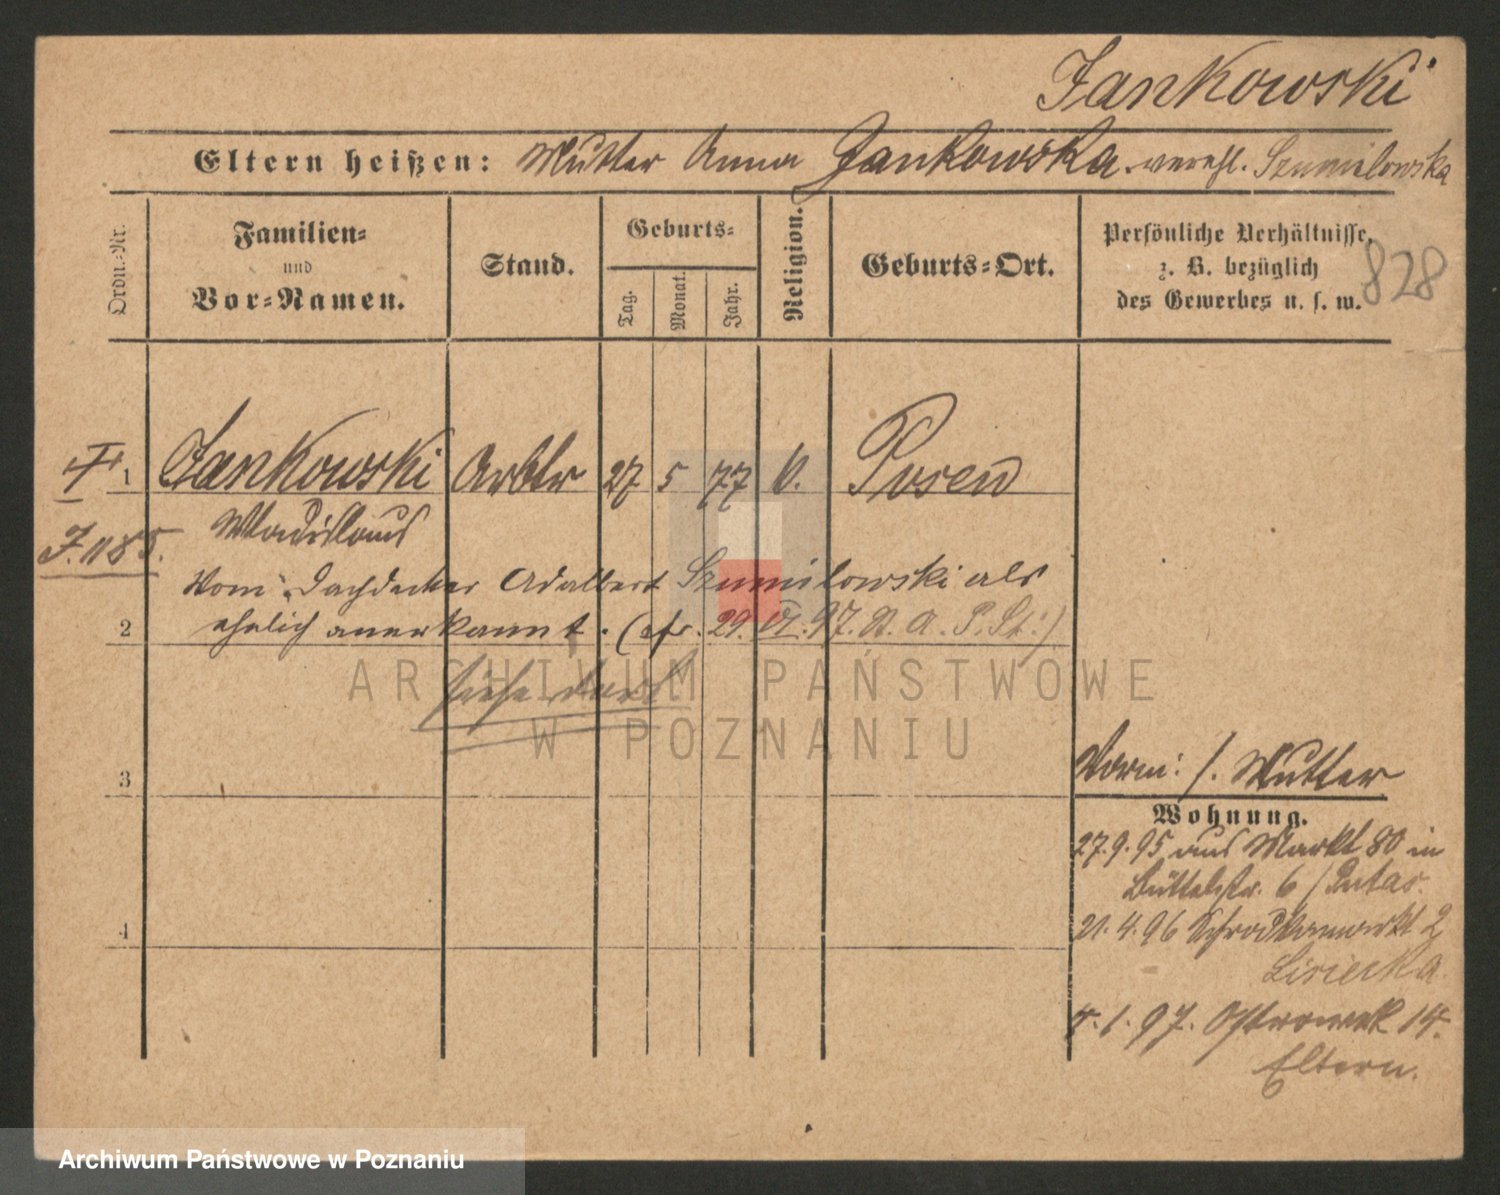 Jankowski
Eltern heißen: Mutter Anna Jankowska verehl. Szumilowska
Ordn.-Nr.
Familien-
und
Vor-Namen.
Stand.
Geburts-
Tag.
Monat.
Jahr.
Religion.
Geburts-Ort.
Persönliche Verhältnisse,
z. B. bezüglich
des Gewerbes u. s. w.
828
1 Jankowski Arbtr 27 5 77 k. Posen
J. 1185.
Wladislaus
Vom Dachdecker Adalbert Szumilowski als
2 ehelich anerkannt. (cfr. 29. VI. 97. St. A. P. St.)
siehe dort
3
4
Vorm: s. Mutter
Wohnung.
27.9.95 aus Markt 80 in
Büttelstr. 6
21.4.96 Schrodkamarkt 2
Lisiecka
4.1.97. Ostrowek 14.
Eltern.
ARCHIWUM PAŃSTWOWE
W POZNANIU
Archiwum Państwowe w Poznaniu